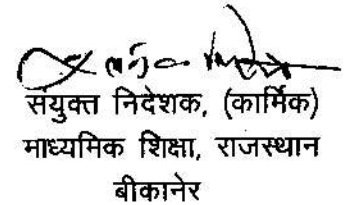 संयुक्त निदेशक, (कार्मिक)
माध्यमिक शिक्षा, राजस्थान
बीकानेर